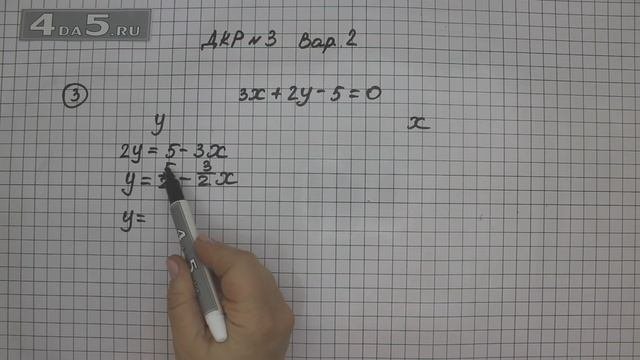 4DA5.RU
ДКР №3 Вар. 2
③ 3x + 2y - 5 = 0
y x
2y = 5 - 3x
y = 5/2 - 3/2 x
y =